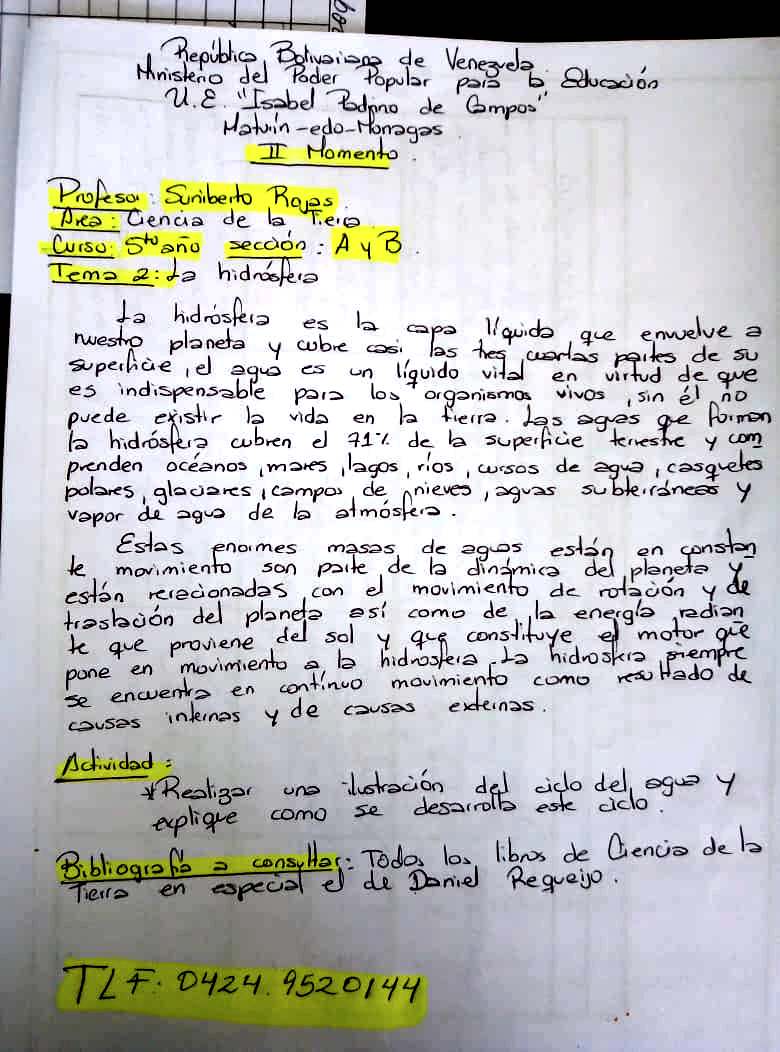 República Bolivariana de Venezuela
Ministerio del Poder Popular para la Educación
U.E. "Isabel Padrino de Campos"
Maturín-edo-Monagas.
II Momento.
Profesor: Suniberto Rojas.
Área: Ciencia de la Tierra.
Curso: 5to año sección: A y B.
Tema 2: La hidrósfera
La hidrósfera es la capa líquida que envuelve a
nuestro planeta y cubre casi las tres cuartas partes de su
superficie, el agua es un líquido vital en virtud de que
es indispensable para los organismos vivos, sin él no
puede existir la vida en la tierra. Las aguas que forman
la hidrósfera cubren el 71% de la superficie terrestre y com
prenden océanos, mares, lagos, ríos, cursos de agua, casquetes
polares, glaciares, campos de nieves, aguas subterráneas y
vapor de agua de la atmósfera.
Estas enormes masas de aguas están en constan
te movimiento son parte de la dinámica del planeta y
están relacionadas con el movimiento de rotación y de
traslación del planeta así como de la energía radian
te que proviene del sol y que constituye el motor que
pone en movimiento a la hidrosfera. La hidrosfera siempre
se encuentra en contínuo movimiento como resultado de
causas internas y de causas externas.
Actividad:
*Realizar una ilustración del ciclo del agua y
explique como se desarrolla este ciclo.
Bibliografía a consultar: Todos los libros de Ciencia de la
Tierra en especial el de Daniel Requeijo.
TLF: 0424.9520144